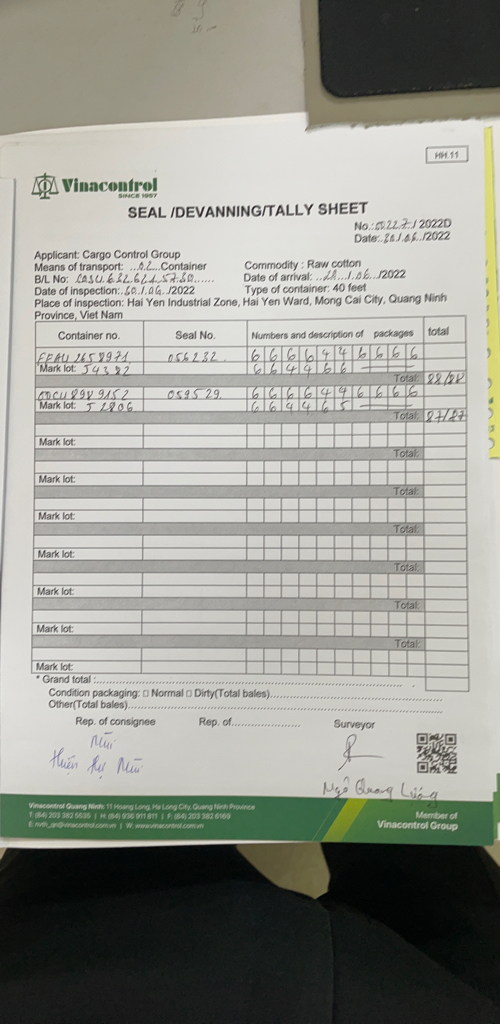 HH.11
Vinacontrol
SINCE 1957
SEAL /DEVANNING/TALLY SHEET
No.: /2022D
Date: /2022
Applicant: Cargo Control Group
Means of transport: ...02...Container
Commodity : Raw cotton
B/L No:
Date of arrival: /2022
Date of inspection: /2022
Type of container: 40 feet
Place of inspection: Hai Yen Industrial Zone, Hai Yen Ward, Mong Cai City, Quang Ninh
Province, Viet Nam
Container no. Seal No. Numbers and description of packages total
056232 6 6 6 6 4 4 6 6 6 6
Mark lot: 6 6 4 4 6 6
Total: 88/88
059529 6 6 6 6 4 4 6 6 6 6
Mark lot: J 2806 6 6 4 4 6 5
Total: 87/87
Mark lot:
Total:
Mark lot:
Total:
Mark lot:
Total:
Mark lot:
Total:
Mark lot:
Total:
Mark lot:
Total:
Mark lot:
* Grand total :
Condition packaging: □ Normal □ Dirty(Total bales)
Other(Total bales)
Rep. of consignee Rep. of Surveyor
Vinacontrol Quang Ninh: 11 Hoang Long, Ha Long City, Quang Ninh Province
T: (84) 203 382 5535 | H: (84) 936 911 811 | F: (84) 203 382 6169
Member of
Vinacontrol Group